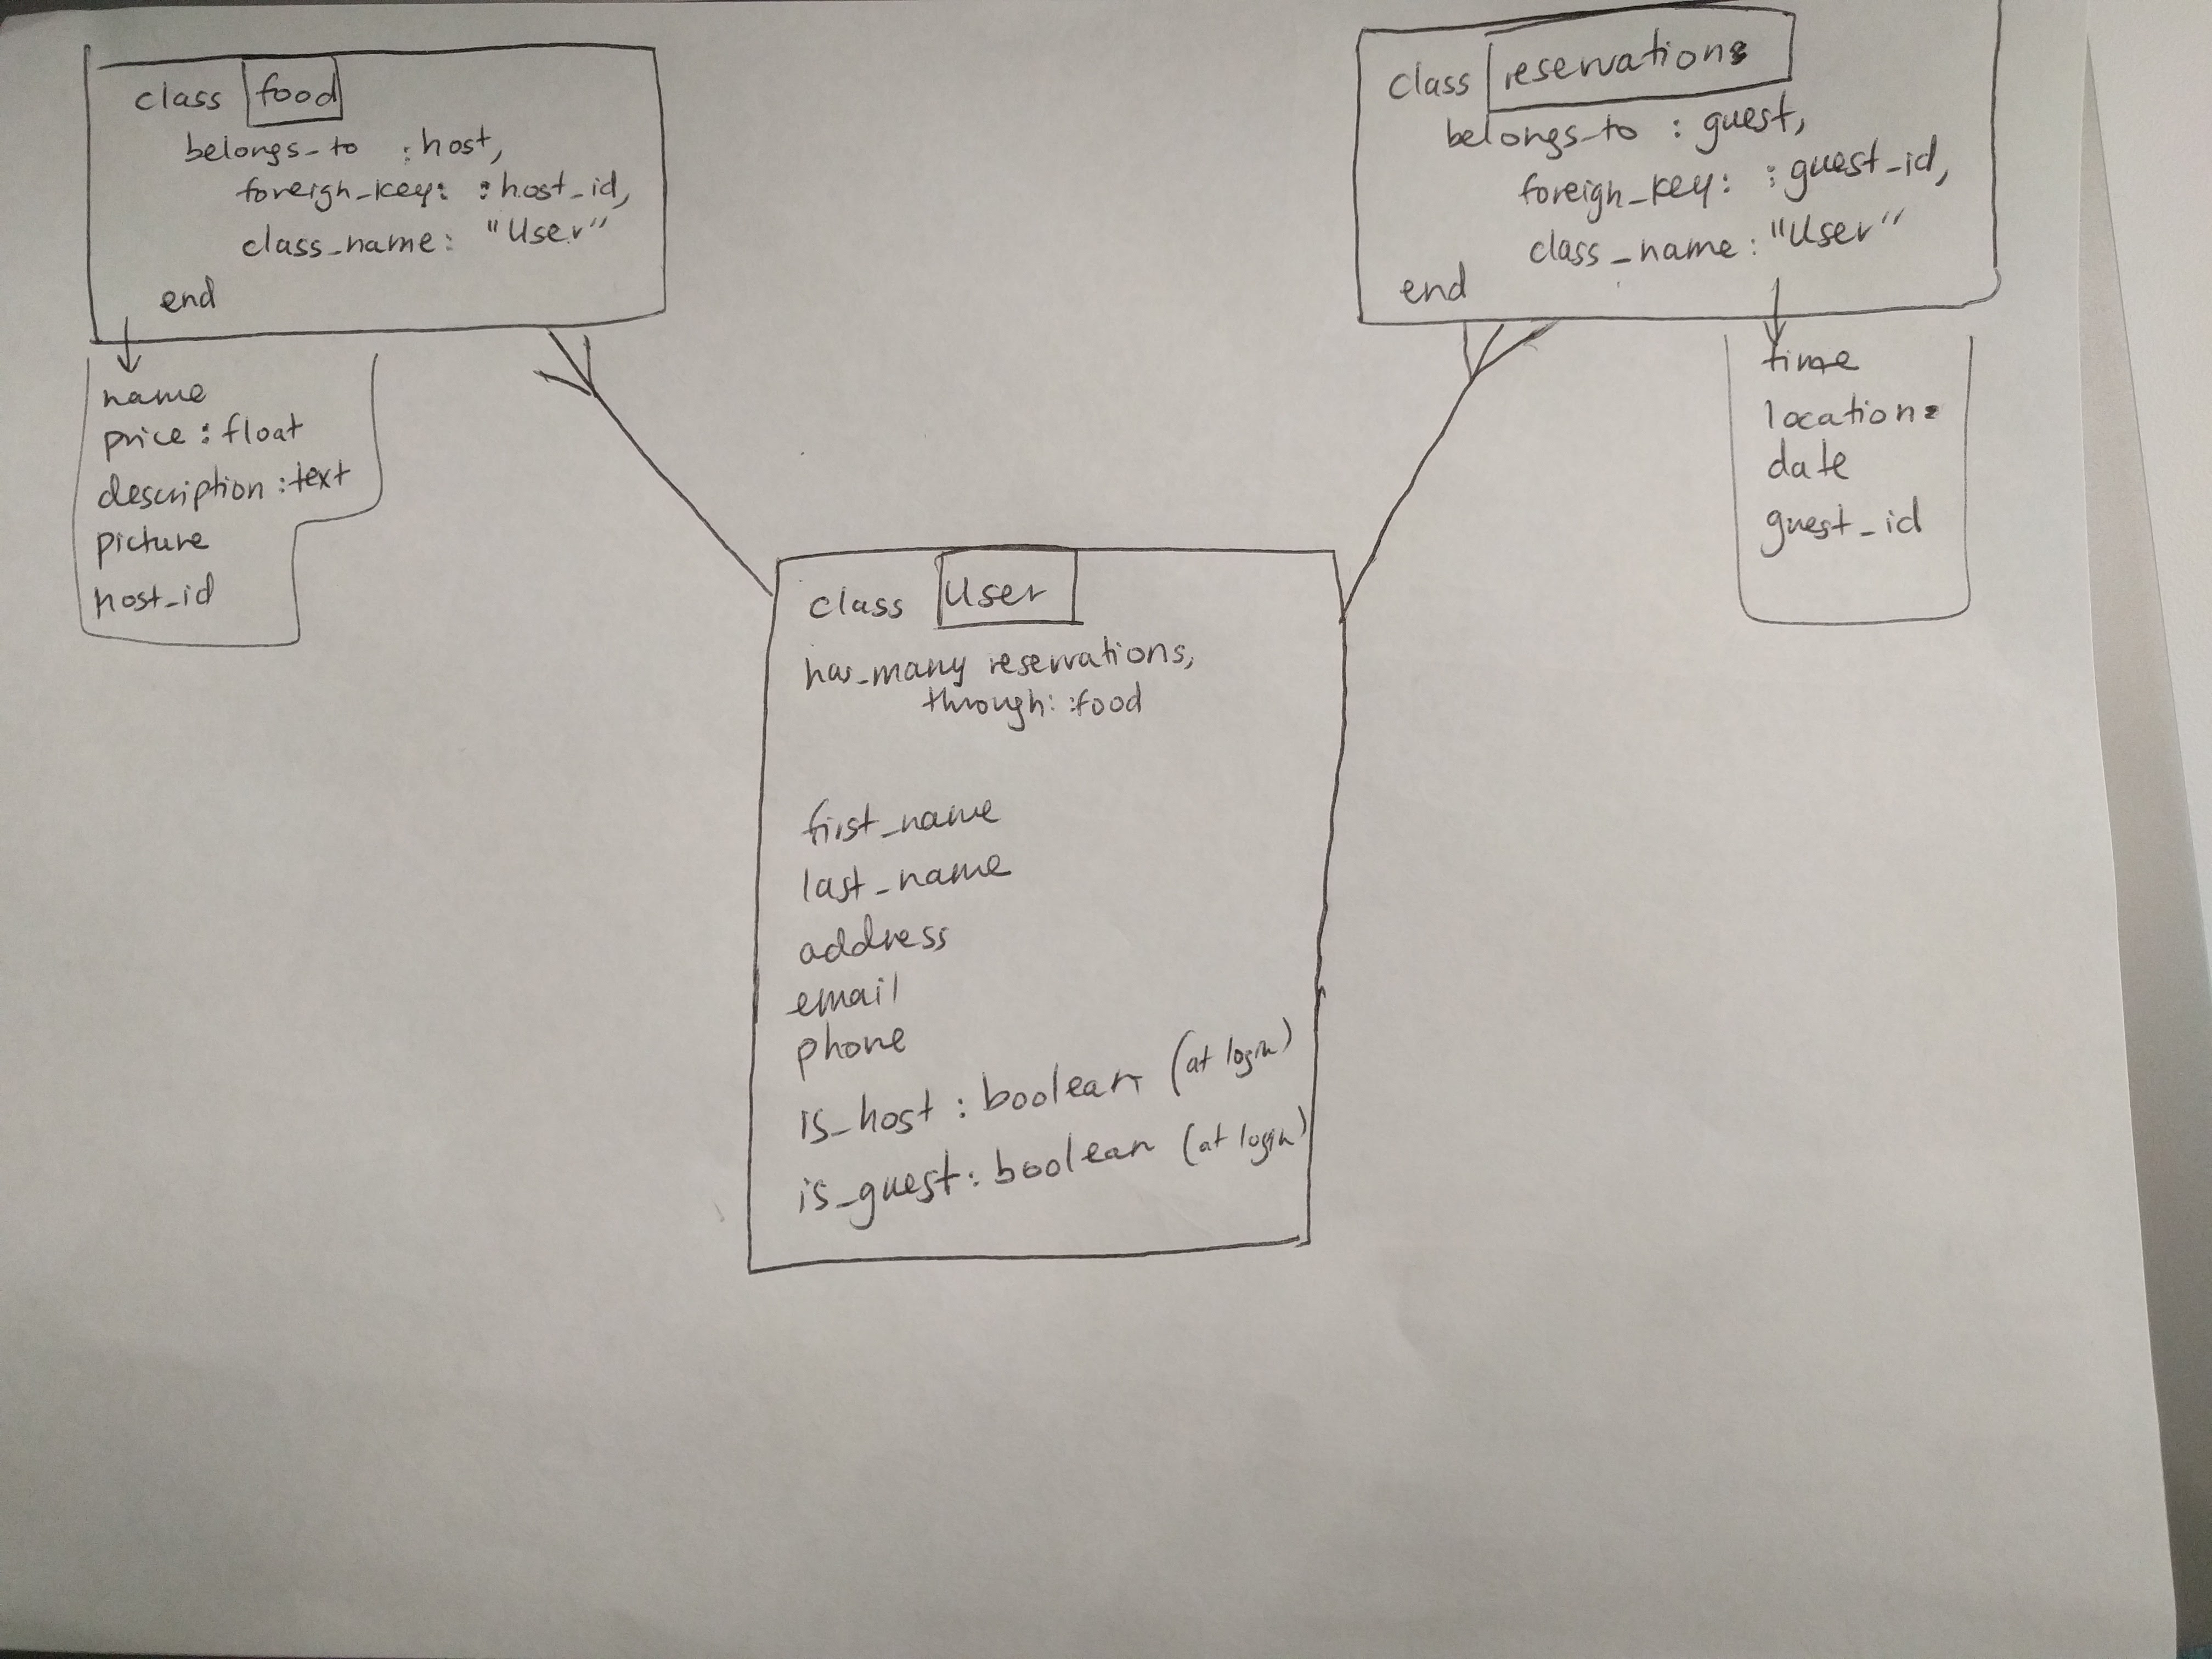 class food
belongs_to :host,
foreigh_key: :host_id,
class_name: "User"
end
name
price : float
description : text
picture
host_id
class reservations
belongs_to : guest,
foreigh_key: :guest_id,
class_name: "User"
end
time
location
date
guest_id
class User
has_many reservations,
through: :food
first_name
last_name
address
email
phone
is_host : boolean (at login)
is_guest : boolean (at login)